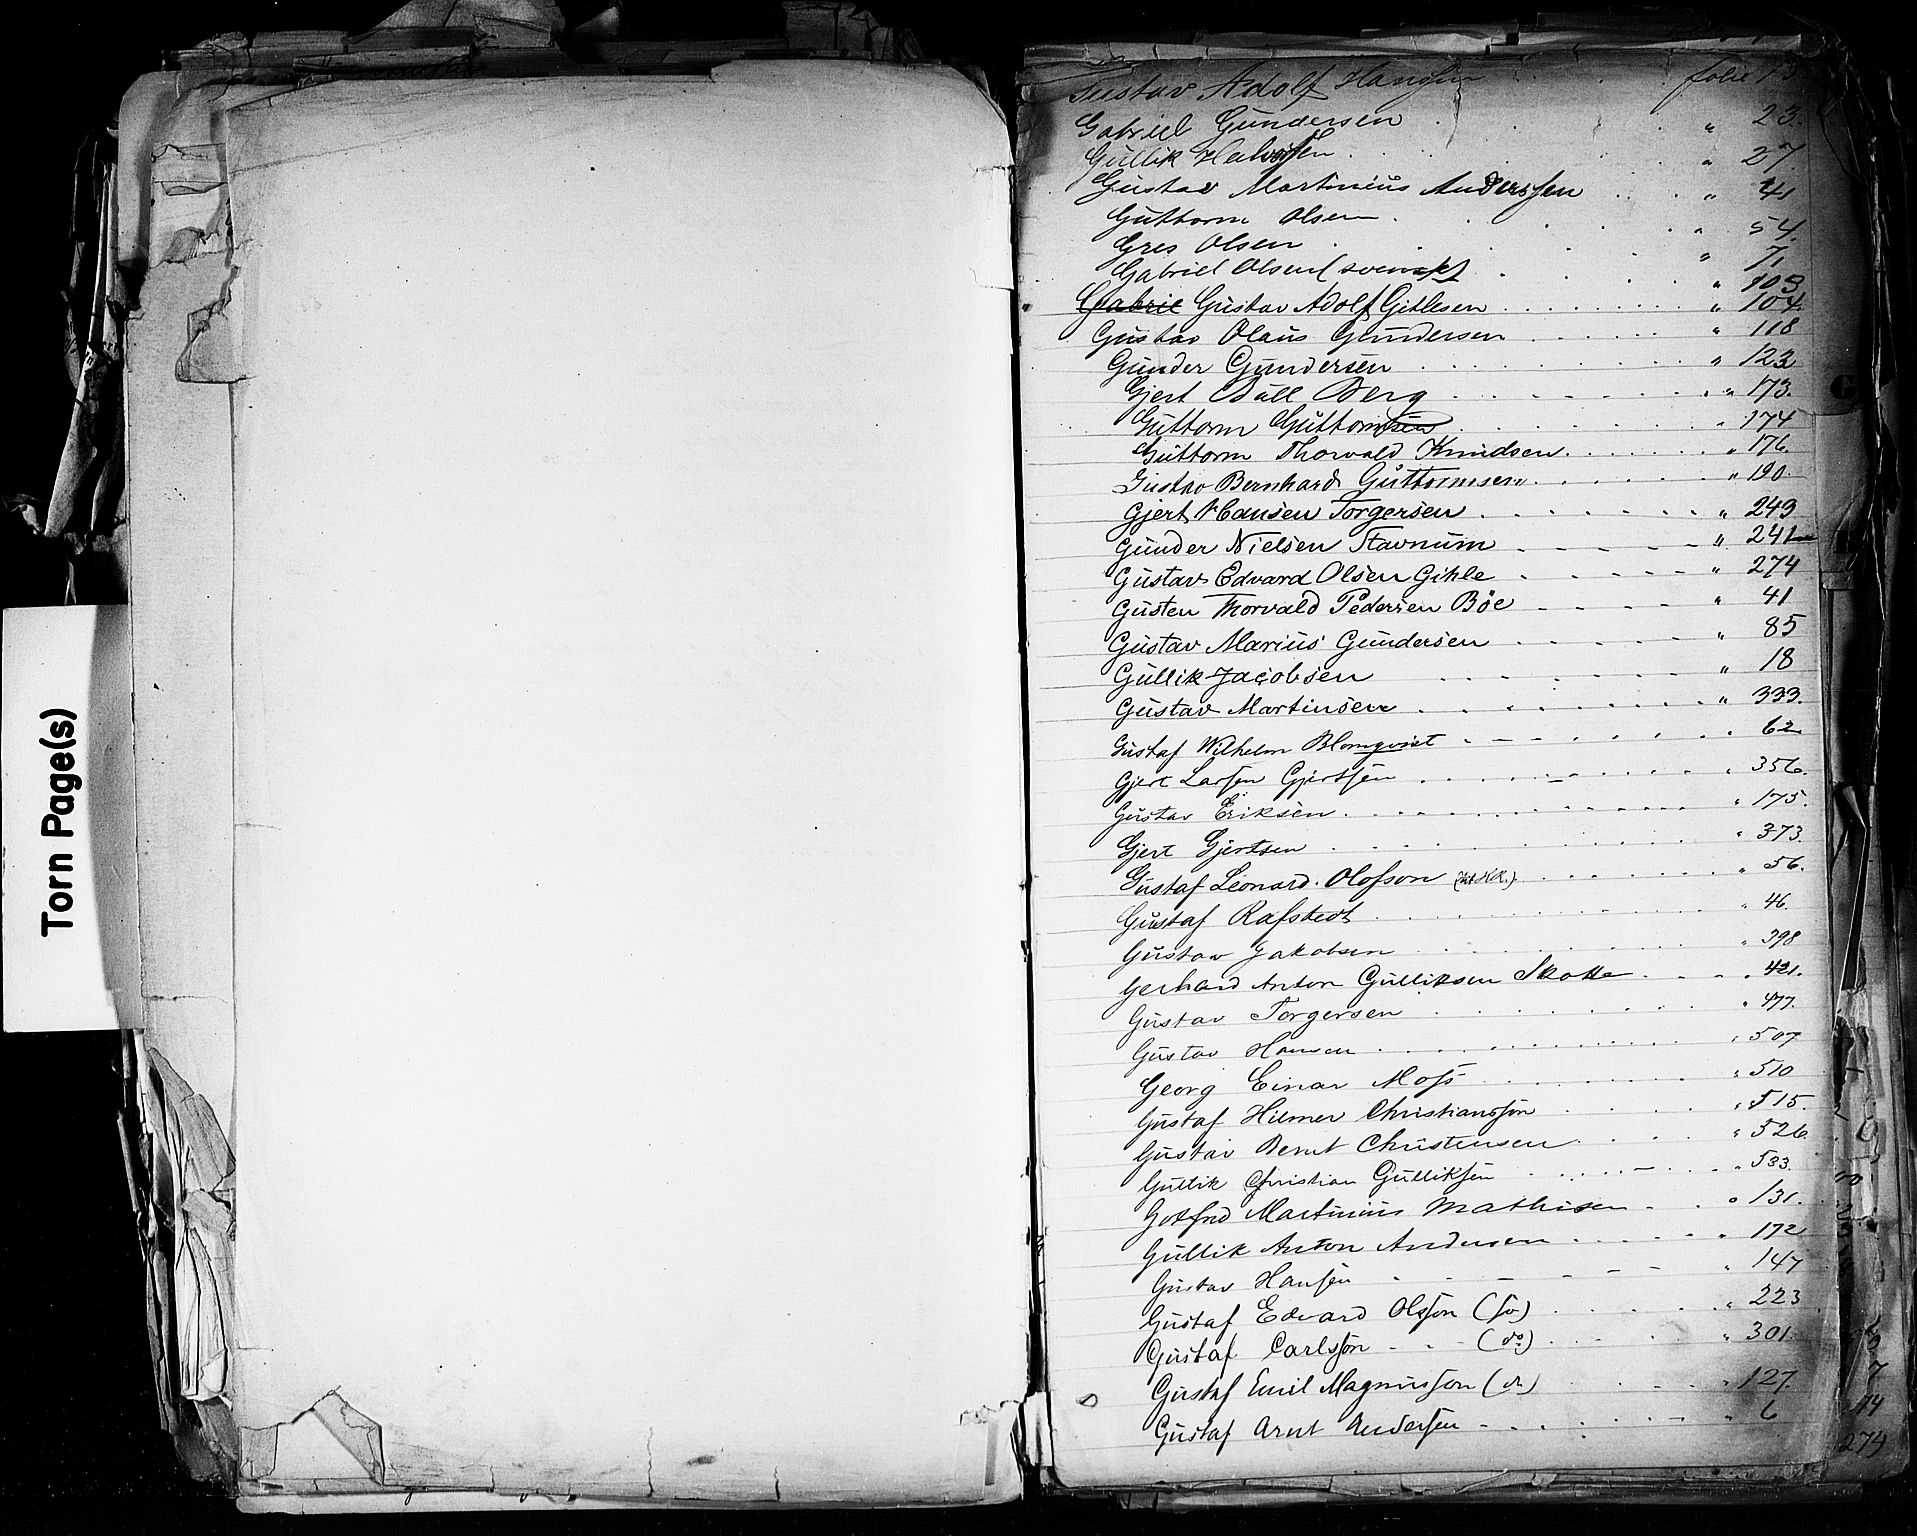 Torn Page(s)
Gustav Adolf folio 13
Gabriel Gundersen " 23.
Gullik Halvorsen " 27
Gustav Martinius Anderssen " 41
Guttorm Olsen " 54.
Gres Olsen " 71
Gabriel Olsen (svensk) " 103
Gabriel Gustav Adolf Gitlesen " 104.
Gustav Olaus Gundersen " 118
Gunder Gundersen " 123
Gjert Dall Berg " 173.
Guttorm Guttormsen " 174
Guttorm Thorvald Knudsen " 176.
Gustav Bernhard Guttormsen " 190
Gjert Hansen Torgersen " 243
Gunder Nielsen Stavnum " 241
Gustav Edvard Olsen Gihle " 274
Gusten Thorvald Pedersen Böe " 41
Gustav Marius Gundersen " 85
Gullik Jacobsen " 18
Gustav Martinsen " 333.
Gustaf Wilhelm Blomqvist " 62
Gjert Larsen Gjertsen " 356.
Gustav Eriksen " 175.
Gjert Gjertsen " 373.
Gustaf Leonard Olofson " 56.
Gustaf Rafstedt " 46.
Gustav Jakobsen " 398
Gerhard Anton Gulliksen Skotte " 421.
Gustav Torgersen " 477.
Gustav Hansen " 507
Georg Einar Moss " 510
Gustaf Hilmer Christiansson " 515.
Gustav Bernt Christensen " 526
Gullik Christian Gulliksen " 533.
Gotfred Martinius Mathisen " 131.
Gullik Anton Andersen " 172
Gustav Hansen " 147
Gustaf Edvard Olsson (sv) " 223
Gustaf Carlsson (do) " 301.
Gustaf Emil Magnusson (do) " 127.
Gustaf Arnt Andersen " 6
274